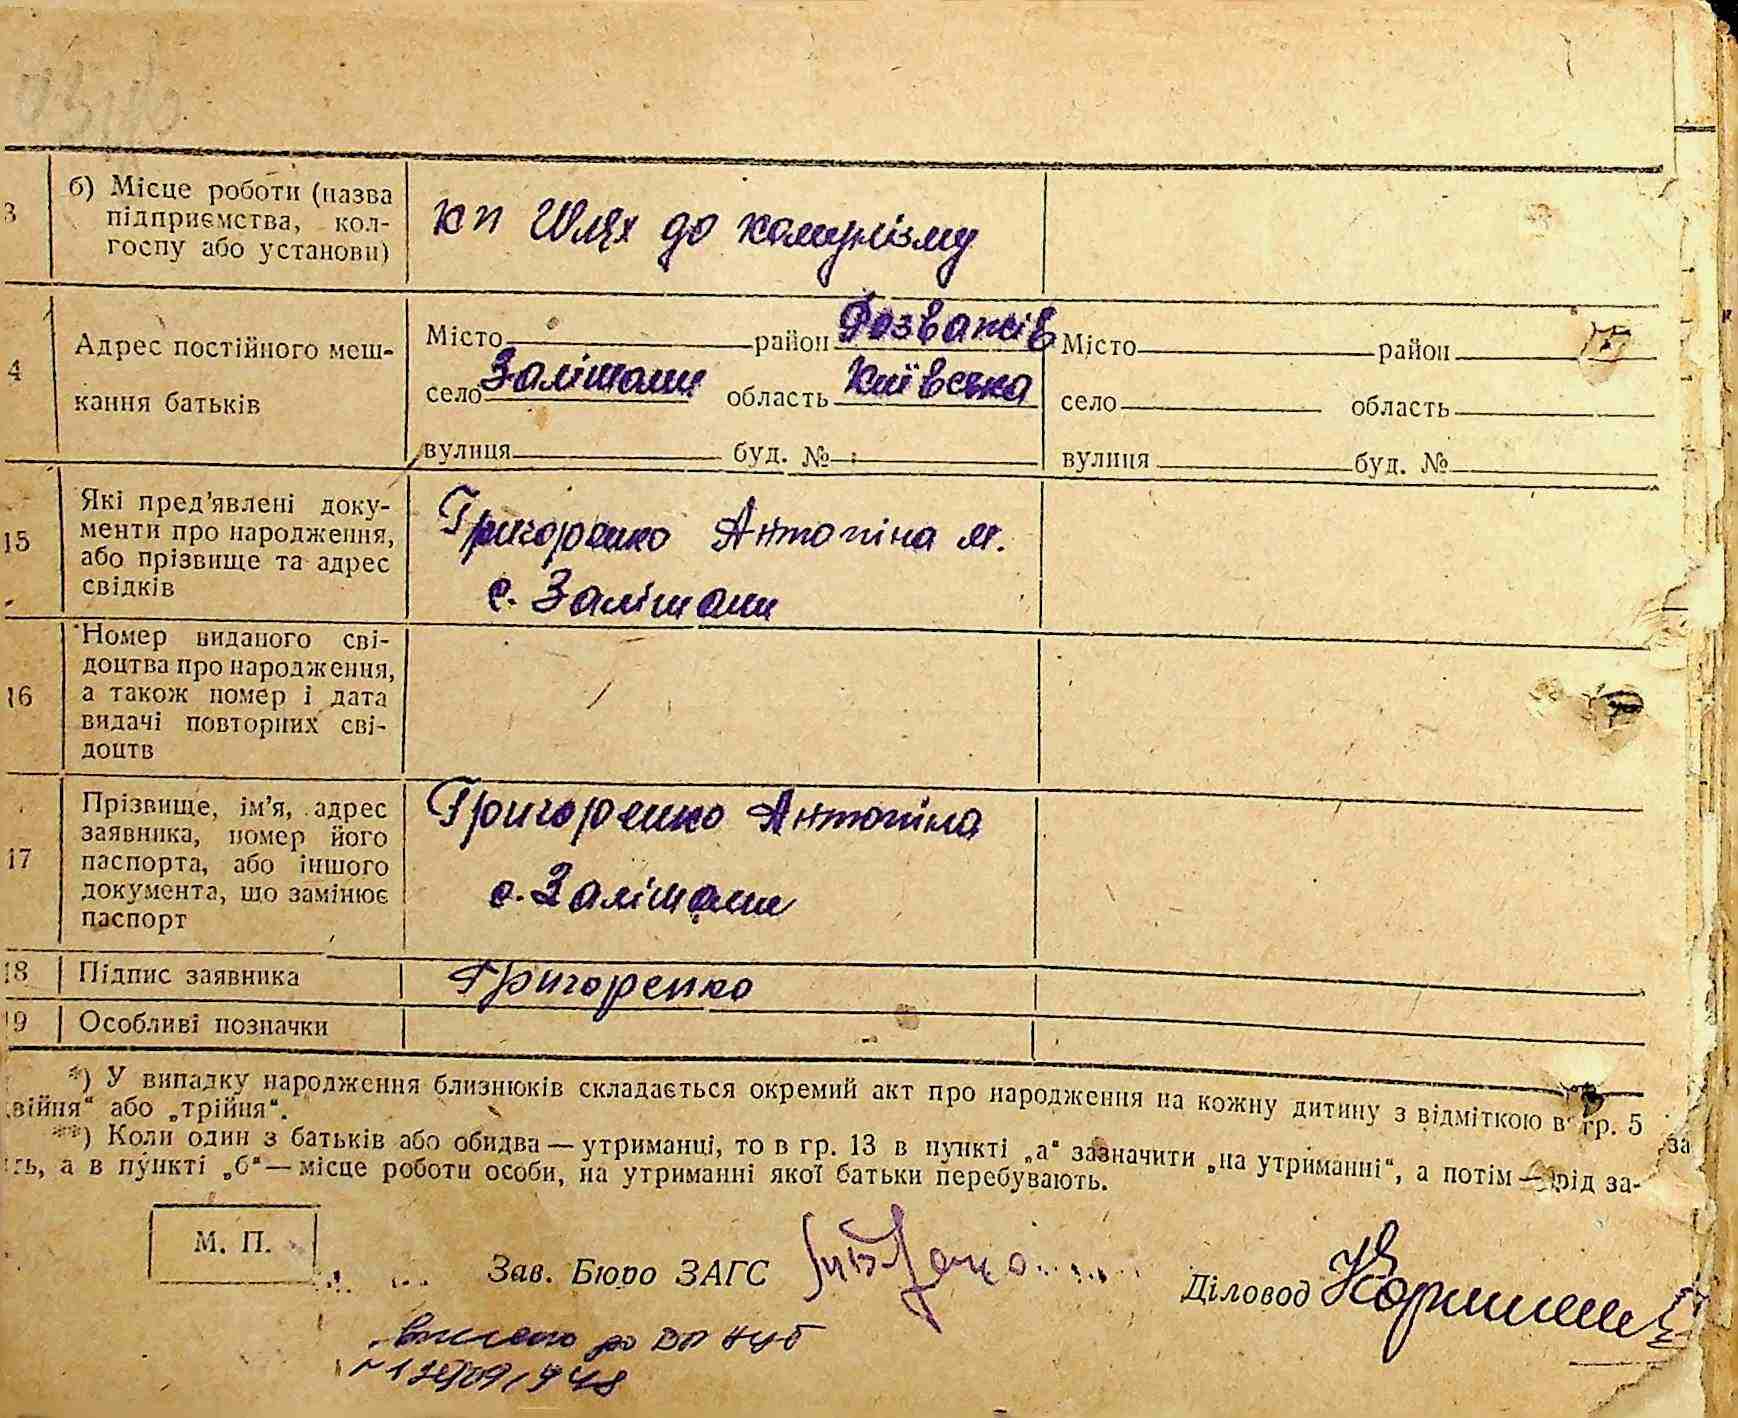 3 б) Місце роботи (назва
підприємства, кол-
госпу або установи)
КП Шлях до комунізму
4 Адрес постійного меш-
кання батьків
Місто район Розважів Місто район
село Залішани область Київська село область
вулиця буд. № вулиця буд. №
15 Які пред'явлені доку-
менти про народження,
або прізвище та адрес
свідків
Григоренко Антоніна М.
с. Залішани
16 Номер виданого сві-
доцтва про народження,
а також номер і дата
видачі повторних сві-
доцтв
17 Прізвище, ім'я, адрес
заявника, номер його
паспорта, або іншого
документа, що замінює
паспорт
Григоренко Антоніна
с. Залішани
18 Підпис заявника Григоренко
19 Особливі позначки
*) У випадку народження близнюків складається окремий акт про народження на кожну дитину з відміткою в гр. 5 за
війня“ або „трійня“.
**) Коли один з батьків або обидва — утриманці, то в гр. 13 в пункті „а“ зазначити „на утриманні“, а потім — рід за-
ть, а в пункті „б“ — місце роботи особи, на утриманні якої батьки перебувають.
М. П.
Зав. Бюро ЗАГС
Діловод
до